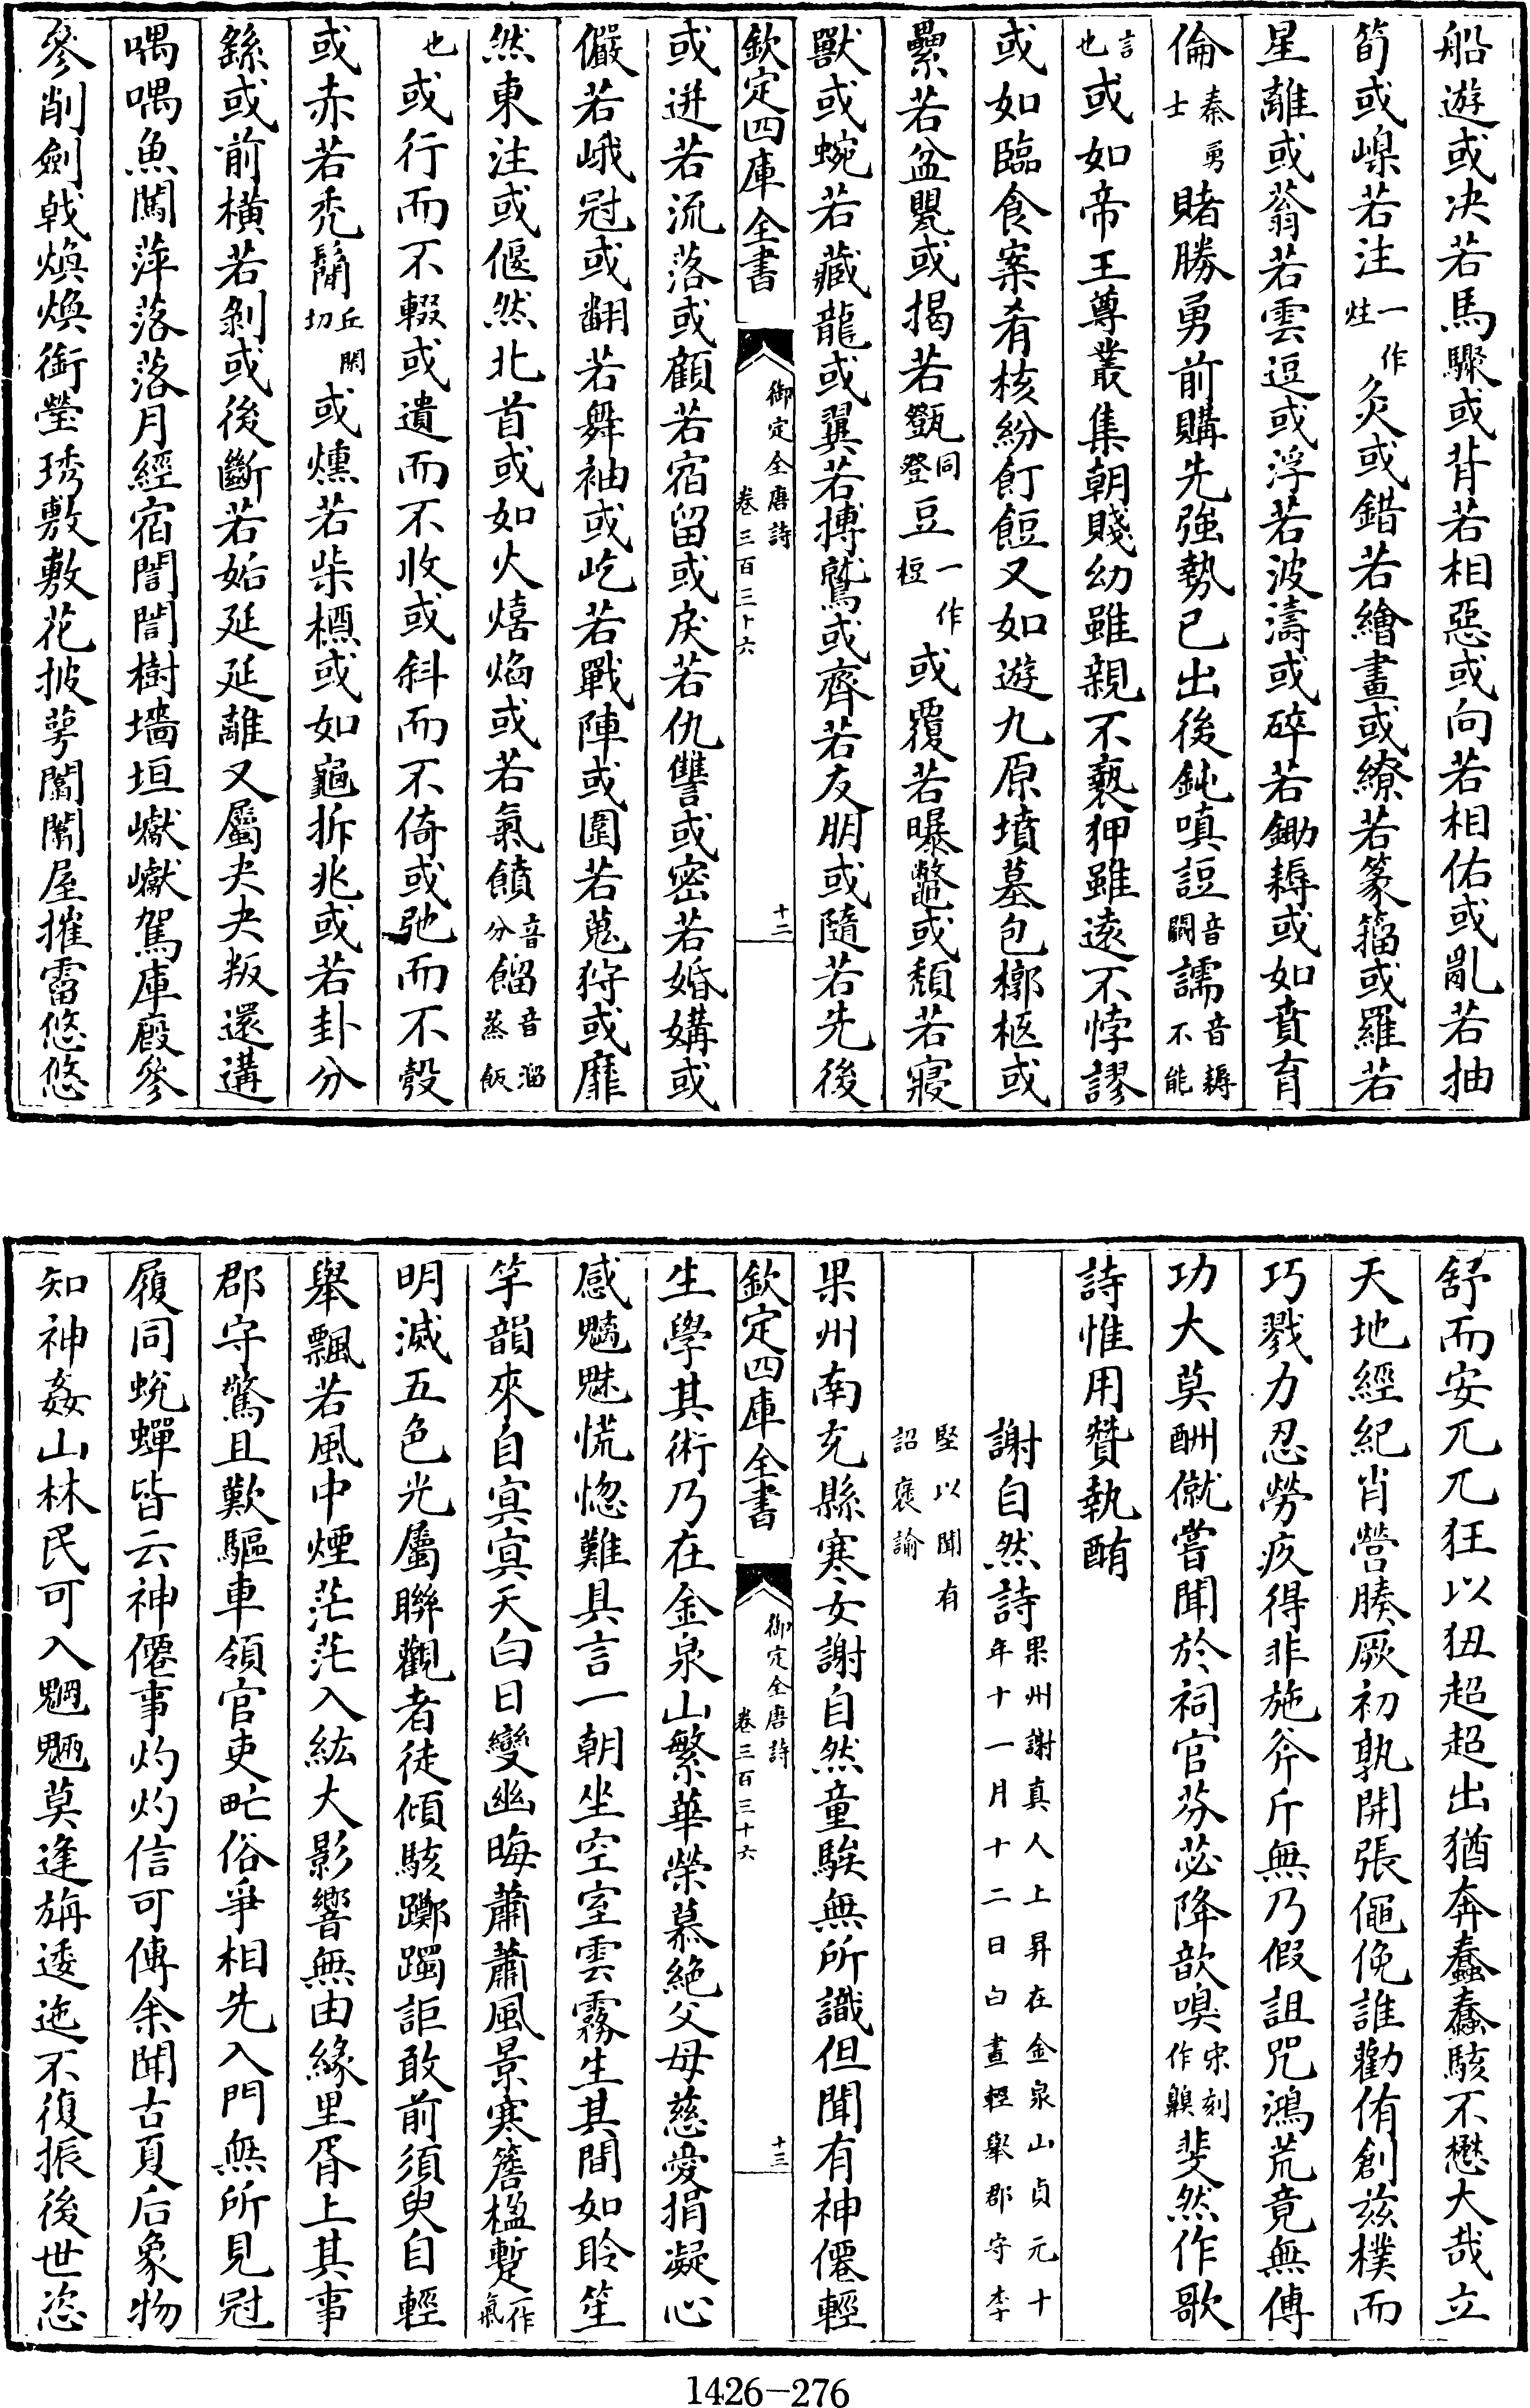 船遊或決若馬驟或背若相惡或向若相佑或亂若抽
筍或嵲若注一作炷灸或錯若繪畫或繚若篆籀或羅若
星離或蓊若雲逗或浮若波濤或碎若鋤耨或如賁育
倫秦勇士賭勝勇前購先強勢已出後鈍嗔䛠音鬭譳音耨不能
言也或如帝王尊叢集朝賤幼雖親不褻狎雖遠不悖謬
或如臨食案肴核紛飣餖又如遊九原墳墓包槨柩或
纍若盆甖或揭若㽅同登豆一作梪或覆若曝鼈或頹若寢
獸或蜿若藏龍或翼若搏鷲或齊若友朋或隨若先後
欽定四庫全書 御定全唐詩卷三百三十六 十二
或迸若流落或顧若宿留或戾若仇讐或密若婚媾或
儼若峨冠或翻若舞袖或屹若戰陣或圍若蒐狩或靡
然東注或偃然北首或如火熺焰或若氣饙音分餾音溜蒸飯
也或行而不輟或遺而不收或斜而不倚或弛而不彀
或赤若禿鬝丘閑切或燻若柴槱或如龜拆兆或若卦分
繇或前橫若剝或後斷若姤延延離又屬夬夬叛還遘
喁喁魚闖萍落落月經宿誾誾樹墻垣巘巘駕庫廄參
參削劍戟煥煥銜瑩琇敷敷花披萼闟闟屋摧霤悠悠
舒而安兀兀狂以狃超超出猶奔蠢蠢駭不懋大哉立
天地經紀肖營腠厥初孰開張僶俛誰勸侑創茲樸而
巧戮力忍勞疚得非施斧斤無乃假詛咒鴻荒竟無傳
功大莫酬僦嘗聞於祠官芬苾降歆嗅宋刻作齅斐然作歌
詩惟用贊執酭
謝自然詩果州謝真人上昇在金泉山貞元十年十一月十二日白晝輕舉郡守李
堅以聞有詔褒諭
果州南充縣寒女謝自然童騃無所識但聞有神僊輕
生學其術乃在金泉山繁華榮慕絶父母慈愛捐凝心
欽定四庫全書 御定全唐詩卷三百三十六 十三
感魑魅慌惚難具言一朝坐空室雲霧生其間如聆笙
竽韻來自㝠㝠天白日變幽晦蕭蕭風景寒簷楹蹔一作氣
明滅五色光屬聯觀者徒傾駭躑躅詎敢前須臾自輕
舉飄若風中煙茫茫入紘大影響無由緣里胥上其事
郡守驚且歎驅車領官吏甿俗爭相先入門無所見冠
履同蛻蟬皆云神僊事灼灼信可傳余聞古夏后象物
知神姦山林民可入魍魎莫逢旃逶迤不復振後世恣
1426-276